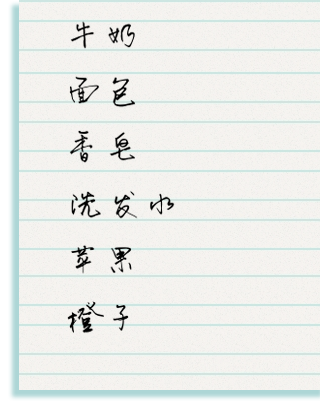 牛奶
面包
香皂
洗发水
苹果
橙子